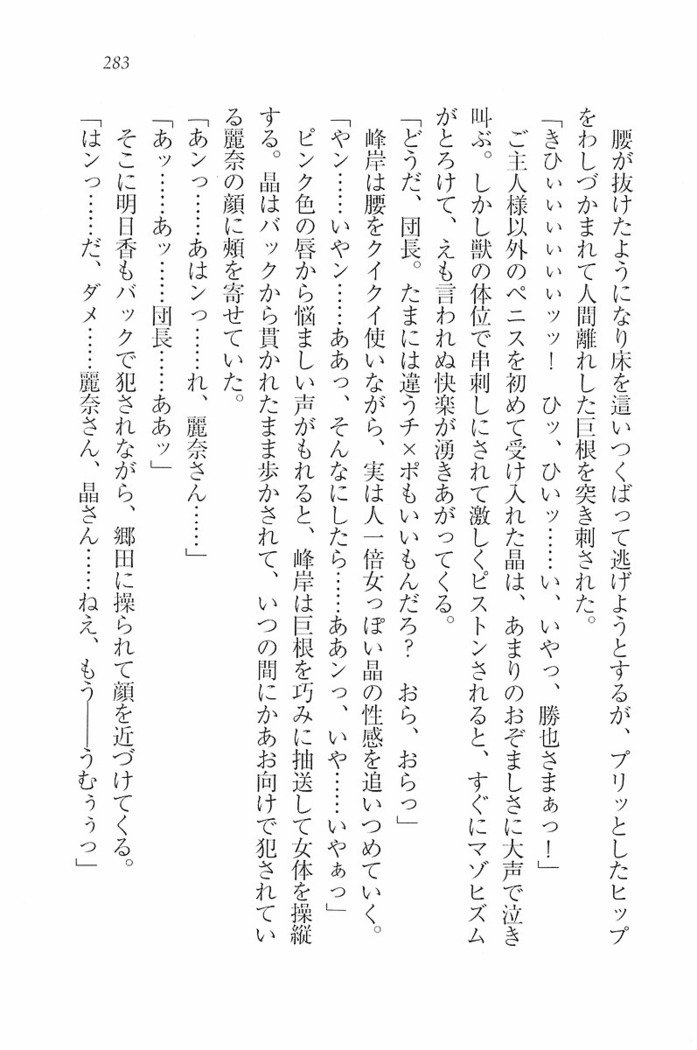 283
腰が抜けたようになり床を這いつくばって逃げようとするが、プリッとしたヒップ
をわしづかまれて人間離れした巨根を突き刺された。
「きひぃぃぃぃぃぃッッ！　ひッ、ひぃッ……い、いやっ、勝也さまぁっ！」
ご主人様以外のペニスを初めて受け入れた晶は、あまりのおぞましさに大声で泣き
叫ぶ。しかし獣の体位で串刺しにされて激しくピストンされると、すぐにマゾヒズム
がとろけて、えも言われぬ快楽が湧きあがってくる。
「どうだ、団長。たまには違うチ×ポもいいもんだろ？　おら、おらっ」
峰岸は腰をクイクイ使いながら、実は人一倍女っぽい晶の性感を追いつめていく。
「やン……いやン……ああっ、そんなにしたら……ああンっ、いや……いやぁっ」
ピンク色の唇から悩ましい声がもれると、峰岸は巨根を巧みに抽送して女体を操縦
する。晶はバックから貫かれたまま歩かされて、いつの間にかあお向けで犯されてい
る麗奈の顔に頰を寄せていた。
「あンっ……あはンっ……れ、麗奈さん……」
「あッ……あッ……団長……ああッ」
そこに明日香もバックで犯されながら、郷田に操られて顔を近づけてくる。
「はンっ……だ、ダメ……麗奈さん、晶さん……ねえ、もう――うむぅぅっ」